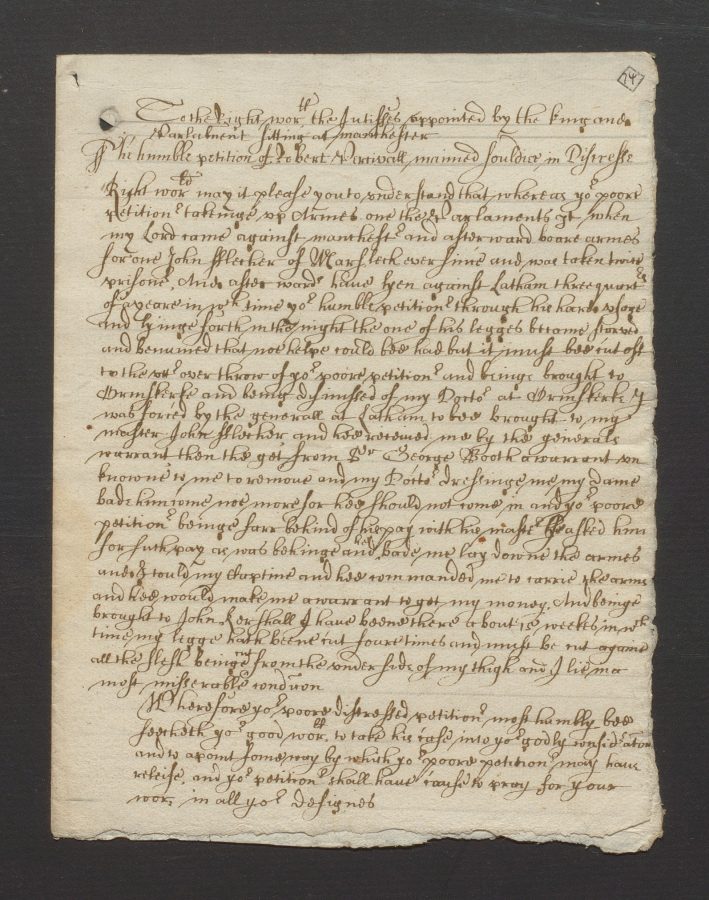 74
To the Right worll the Justisses appointed by the king and
Parlabment sitting at manchester
The humble petition of Robert Percivall, maimed souldier in Distresse
Right worll may it please you to understand that whereas yor poore
petitionr takeinge up Armes one the Parlaments when
my Lord came against manchestr and afterward boare armes
for one John fflecher of Mars ever sinc and was taken twise
prisoner, And after wards have lyen against Latham three quartrs
of a yeare in wch time yor humble petitionr through his hard usage
and lyinge forth in the night the one of his legges became starved
and benumed that noe helpe could bee had but it must bee cut off
to the uttr over throw of yor poore petitionr and beinge brought to
Ormskerke and being dismissed of my Doctor at Ormskerke I
was forced by the generall at Latham to bee brought to my
master John fflecher and hee received me by the generals
warrant then the get from Sr George Booth a warrant un
knowne to me to remove and my Doctor dressinge me my dame
bade him come noe more for hee should not come in and yor poore
petitionr beinge farr behind of his pay with his mastr hee asked him
for such pay as was behinge and hee bade me lay downe the armes
and I tould my Captine and hee commanded me to carrie the arms
and hee would make me a warrant to get my money. And beinge
brought to John Kershall I have beene there about 15 weekes in wch
time my legge hath beene cut foure times and must be cut againe
all the flesh beinge from the under side of my thigh and I lie in a
most misserable condicon
Wherefore yor poore distressed petitionr most humbly bee
seecheth yor good worll to take his case into yor godly considration
and to apoint some way by which yor poore petitionr may have
releife. and yor petitionr shall have cause to pray for your
worr in all yor designes